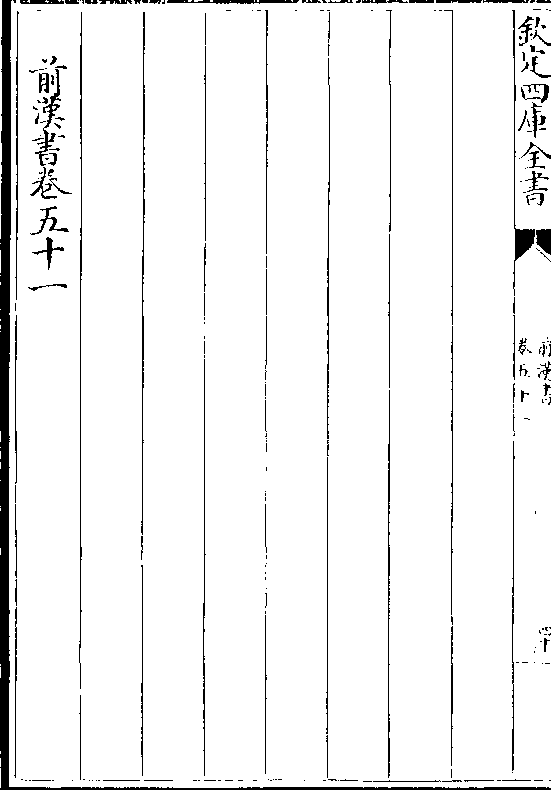 欽定四庫全書
前漢書
卷五十一
四十
前漢書卷五十一